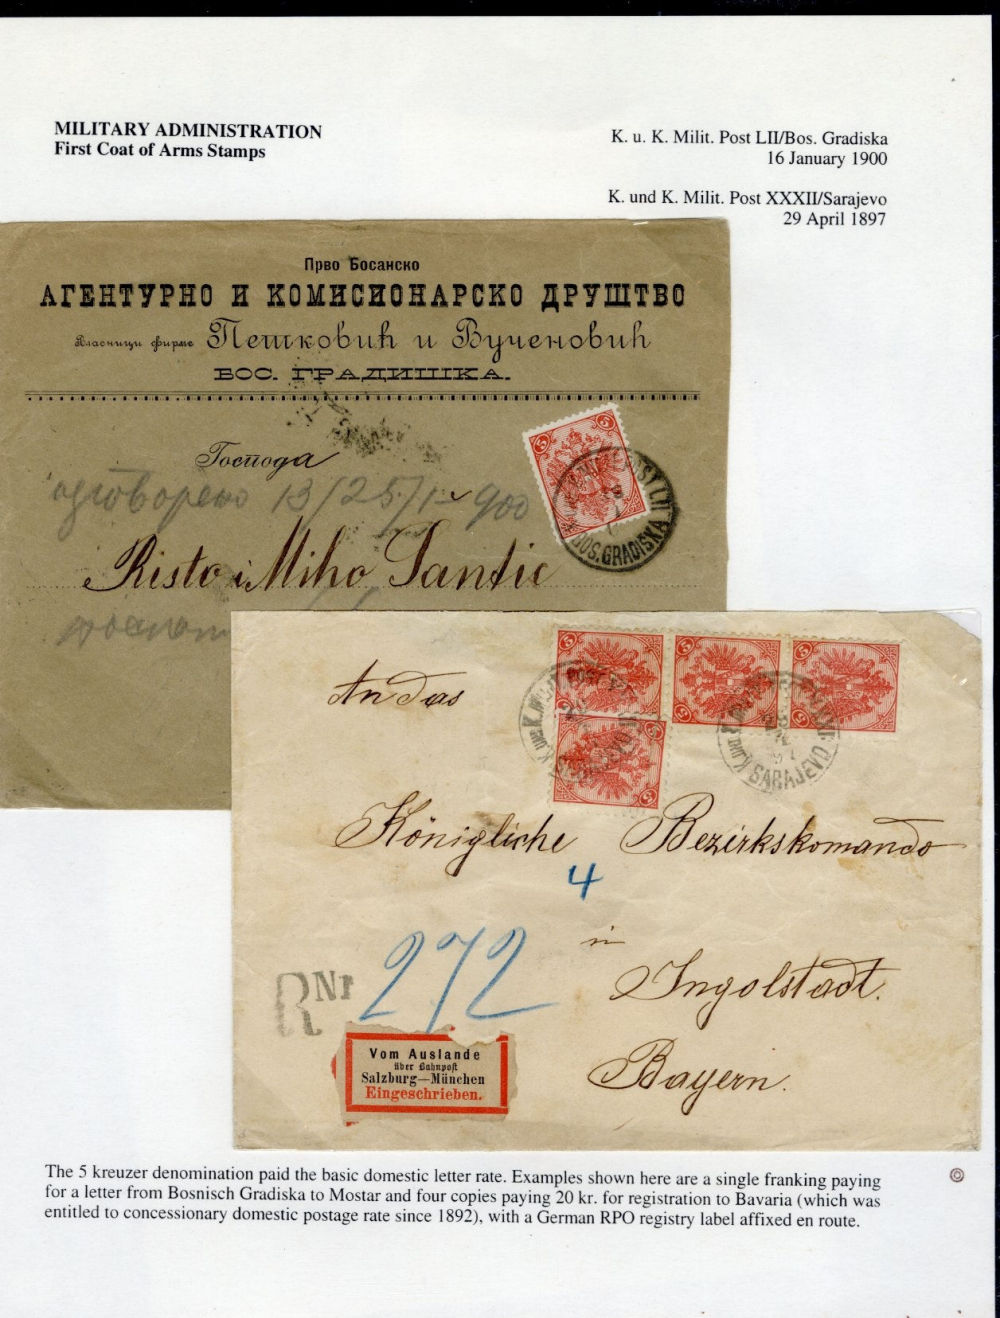 MILITARY ADMINISTRATION
First Coat of Arms Stamps
K. u. K. Milit. Post LII/Bos. Gradiska
16 January 1900
K. und K. Milit. Post XXXII/Sarajevo
29 April 1897
Прво Босанско
АГЕНТУРНО И КОМИСИОНАРСКО ДРУШТВО
Власници фирме Петковић и Вученовић
БОС. ГРАДИШКА.
Господа
5 5
5
POST LII
BOS. GRADIŠKA
одговорено 13/25/1-900
Risto i Miho Šantić
5 5 5
5 5
5
An das
K. UND K.
K. UND K. SARAJEVO
Königliche Bezirkskomando
4
in
272
Ingolstadt.
R Nr
Bayern.
Vom Auslande
über Bahnpost
Salzburg—München
Eingeschrieben.
The 5 kreuzer denomination paid the basic domestic letter rate. Examples shown here are a single franking paying
for a letter from Bosnisch Gradiska to Mostar and four copies paying 20 kr. for registration to Bavaria (which was
entitled to concessionary domestic postage rate since 1892), with a German RPO registry label affixed en route.
©